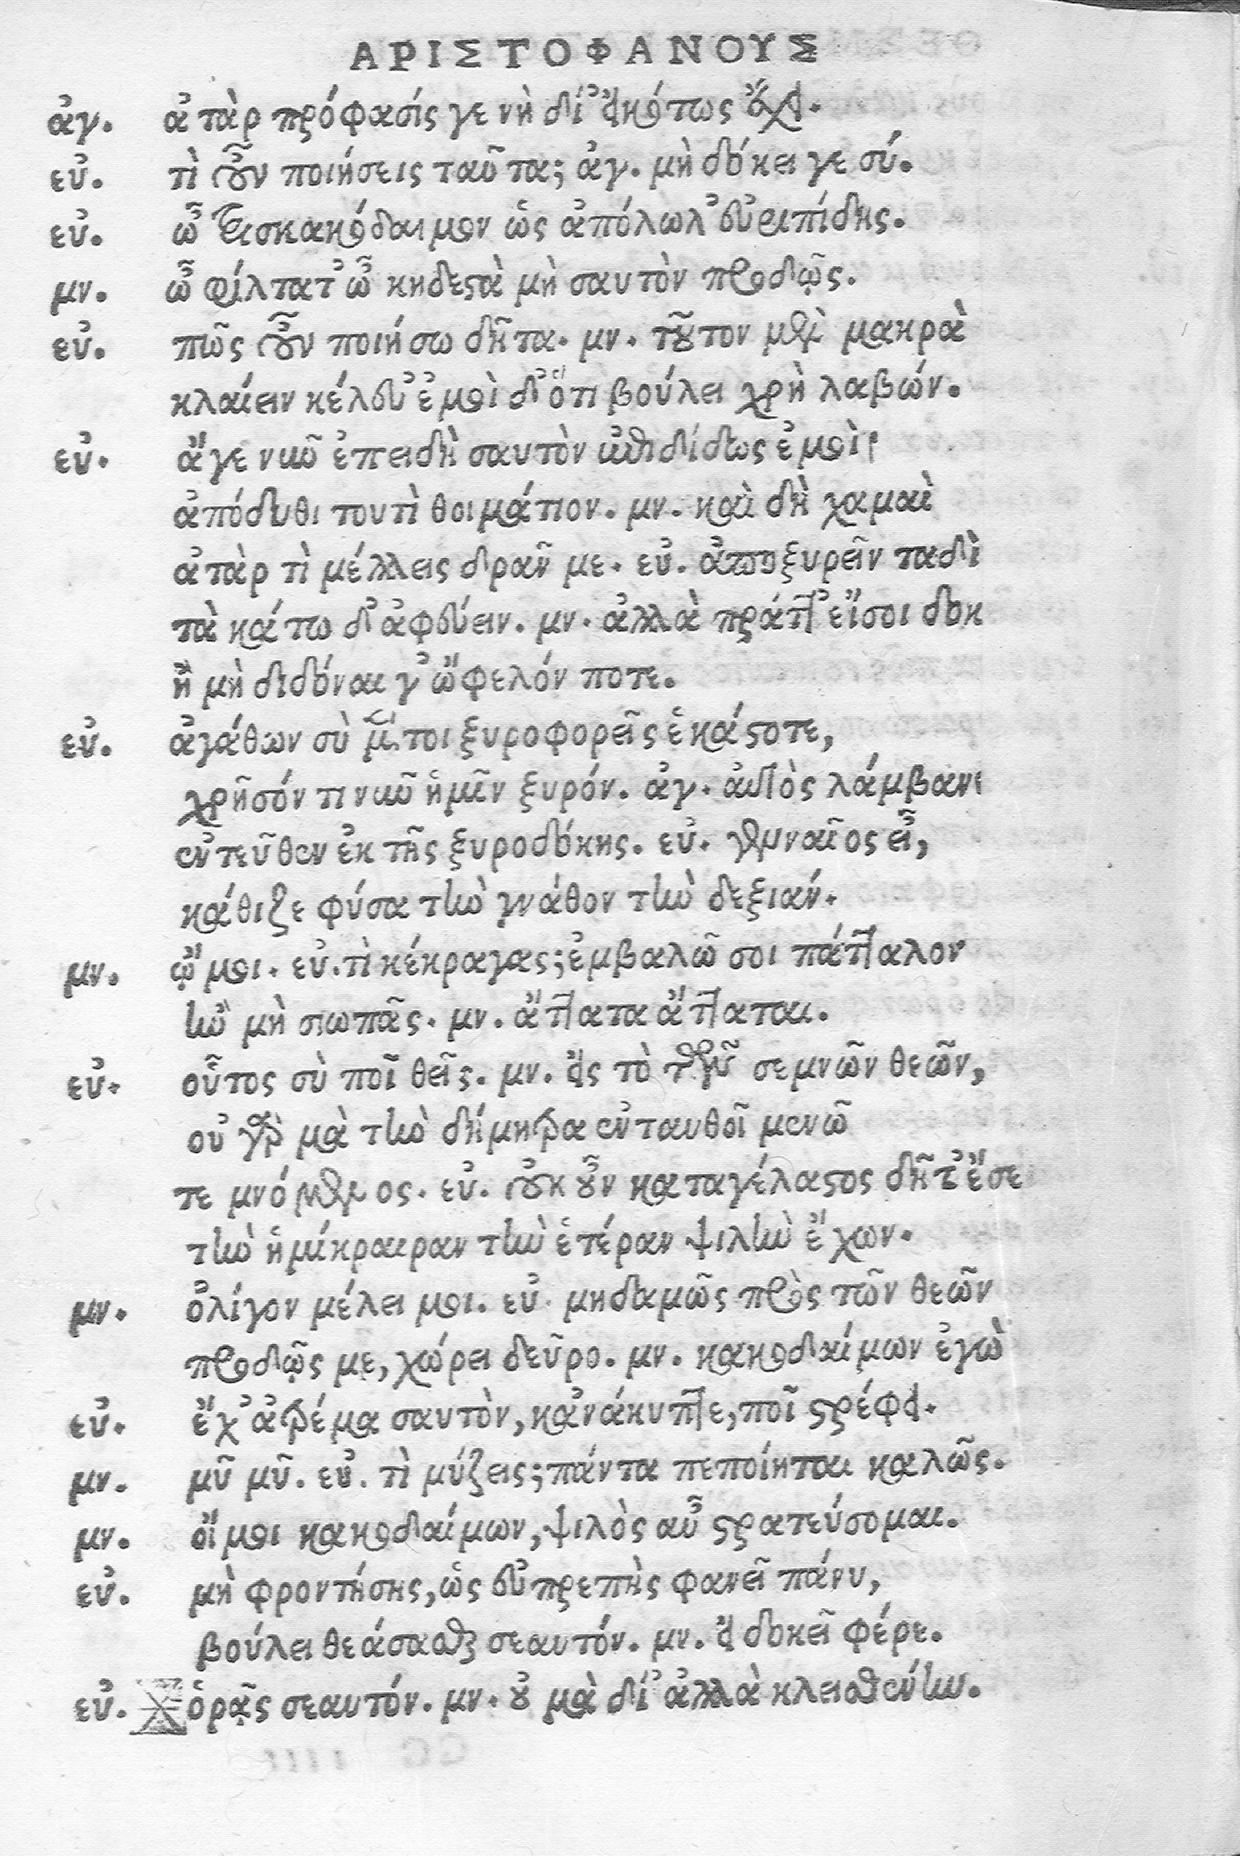 ΑΡΙΣΤΟΦΑΝΟΥΣ
ἀγ. ἀτὰρ πρόφασίς γε νὴ δί' εἰκότως ἔχει.
εὐ. τὶ οὖν ποιήσεις ταῦτα; ἀγ. μὴ δόκει γε σύ.
εὐ. ὦ τρισκακόδαιμον ὡς ἀπόλωλ' εὐριπίδης.
μν. ὦ φίλτατ' ὦ κηδεστὰ μὴ σαυτὸν προδῷς.
εὐ. πῶς οὖν ποιήσω δῆτα. μν. τοῦτον μὲν μακρὰ
κλαίειν κέλευ' ἐμοὶ δ' ὅτι βούλει χρὴ λαβών.
εὐ. ἄγε νυῦ ἐπειδὴ σαυτὸν ἐπιδίδως ἐμοὶ
ἀπόδυθι τουτὶ θοιμάτιον. μν. καὶ δὴ χαμαὶ
ἀτὰρ τὶ μέλλεις δρᾶν με. εὐ. ἀποξυρεῖν ταδὶ
τὰ κάτω δ' ἀφεύειν. μν. ἀλλὰ πράττ' εἴσοι δοκ
ἢ μὴ διδόναι γ' ὤφελόν ποτε.
εὐ. ἀγάθων σὺ μέντοι ξυροφορεῖς ἑκάστοτε,
χρῆσόν τι νυῦ ἡμῖν ξυρόν. ἀγ. αὐτὸς λάμβανε
ἐντεῦθεν ἐκ τῆς ξυροδόκης. εὐ. γενναῖος εἶ,
κάθιζε φύσα τὴν γνάθον τὴν δεξιάν.
μν. ᾤμοι. εὐ. τὶ κέκραγας; ἐμβαλῶ σοι πάτταλον
ἢν μὴ σιωπᾷς. μν. ἄτταται ἄτταται.
εὐ. οὗτος σὺ ποῖ θεῖς. μν. εἰς τὸ τῶν σεμνῶν θεῶν,
οὐ γὰρ μὰ τὴν δήμητρα ἐνταυθοῖ μενῶ
τεμνόμενος. εὐ. οὐκοῦν καταγέλαστος δῆτ' ἔσει
τὴν ἡμίκραιραν τὴν ἑτέραν ψιλὴν ἔχων.
μν. ὀλίγον μέλει μοι. εὐ. μηδαμῶς πρὸς τῶν θεῶν
προδῷς με, χώρει δεῦρο. μν. κακοδαίμων ἐγὼ
εὐ. ἔχ' ἀτρέμα σαυτὸν, κἀνάκυπτε, ποῖ στρέφει.
μν. μῦ μῦ. εὐ. τὶ μύζεις; πάντα πεποίηται καλῶς.
μν. οἴμοι κακοδαίμων, ψιλὸς αὖ στρατεύσομαι.
εὐ. μὴ φροντήσης, ὡς εὐπρεπὴς φανεῖ πάνυ,
βούλει θεάσασθαι σεαυτόν. μν. εἰ δοκεῖ φέρε.
εὐ. ὁρᾷς σεαυτόν. μν. οὐ μὰ δί' ἀλλὰ κλεισθένην.